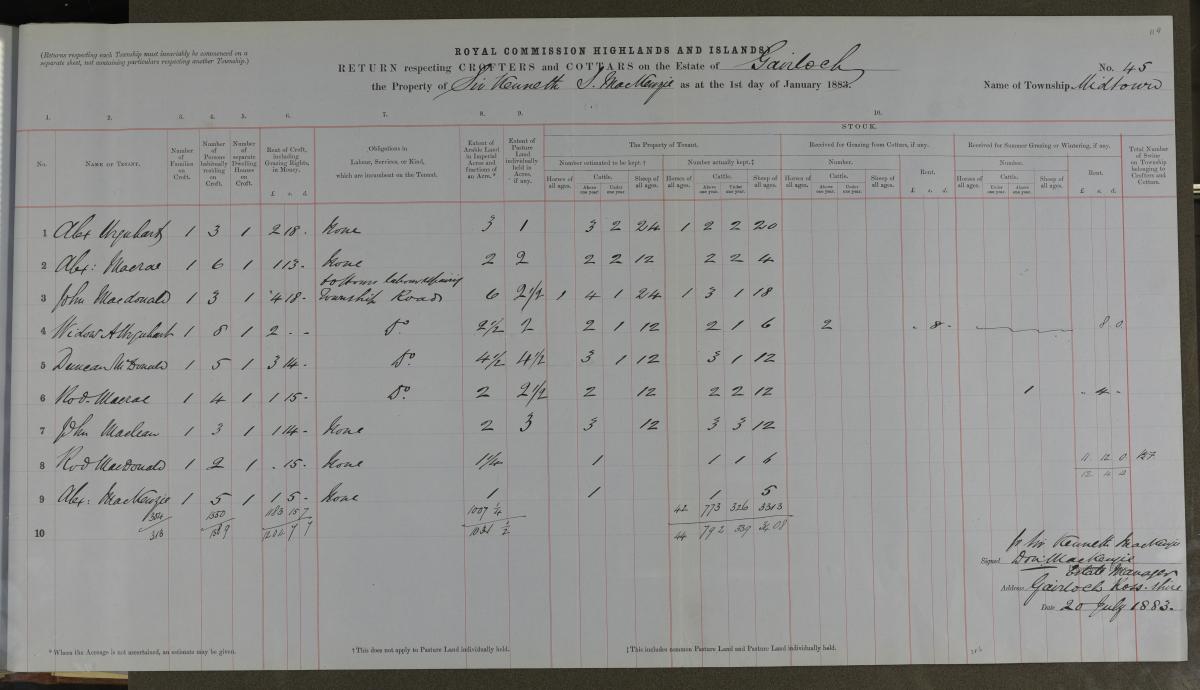 119
(Returns respecting each Township must invariably be commenced on a
separate sheet, not containing particulars respecting another Township.)
ROYAL COMMISSION HIGHLANDS AND ISLANDS.
RETURN respecting CROFTERS and COTTARS on the Estate of Gairloch
No. 45
the Property of Sir Kenneth S. MacKenzie as at the 1st day of January 1883.
Name of Township Midtown
1. 2. 3. 4. 5. 6. 7. 8. 9. 10.
STOCK.
No.
NAME OF TENANT.
Number of Families on Croft.
Number of Persons habitually residing on Croft.
Number of separate Dwelling Houses on Croft.
Rent of Croft, including Grazing Rights, in Money.
£ s. d.
Obligations in
Labour, Services, or Kind,
which are incumbent on the Tenant.
Extent of Arable Land in Imperial Acres and fractions of an Acre.*
Extent of Pasture Land individually held in Acres, if any.
The Property of Tenant.
Number estimated to be kept.†
Horses of all ages.
Cattle.
Above one year.
Under one year.
Sheep of all ages.
Number actually kept.‡
Horses of all ages.
Cattle.
Above one year.
Under one year.
Sheep of all ages.
Received for Grazing from Cottars, if any.
Number.
Horses of all ages.
Cattle.
Above one year.
Under one year.
Sheep of all ages.
Rent.
£ s. d.
Received for Summer Grazing or Wintering, if any.
Number.
Horses of all ages.
Cattle.
Under one year.
Above one year.
Sheep of all ages.
Rent.
£ s. d.
Total Number of Swine on Township belonging to Crofters and Cottars.
1 Alex Urquhart 1 3 1 2 18 - None 3 1 3 2 24 1 2 2 20
2 Alex: Macrae 1 6 1 1 13 - None 2 2 2 2 12 2 2 4
3 John Macdonald 1 3 1 4 18 - labour repairing Township Roads 6 2 1/2 1 4 1 24 1 3 1 18
4 Widow A Urquhart 1 8 1 2 - - Do. 2 1/2 2 2 1 12 2 1 6 2 - 8 - 8 0
5 Duncan McDonald 1 5 1 3 14 - Do. 4 1/2 4 1/2 3 1 12 3 1 12
6 Rod. Macrae 1 4 1 1 15 - Do. 2 2 1/2 2 12 2 2 12 1 - 4 -
7 John Maclean 1 3 1 1 14 - None 2 3 3 12 3 3 12
8 Rod MacDonald 1 2 1 - 15 - None 1 1/4 1 1 1 6 11 12 0 127
12 4 0
9 Alex: MacKenzie 1 5 1 1 5 - None 1 1 1 5
304 1550 1183 15 7 1007 1/4 42 773 326 3313
10 313 1589 1204 7 7 1031 1/2 44 792 339 3408
pr Sir Kenneth MacKenzie
Signed Don: MacKenzie
Estate Manager
Address Gairloch Ross-shire
Date 20 July 1883.
* Where the Acreage is not ascertained, an estimate may be given.
† This does not apply to Pasture Land individually held.
‡ This includes common Pasture Land and Pasture Land individually held.